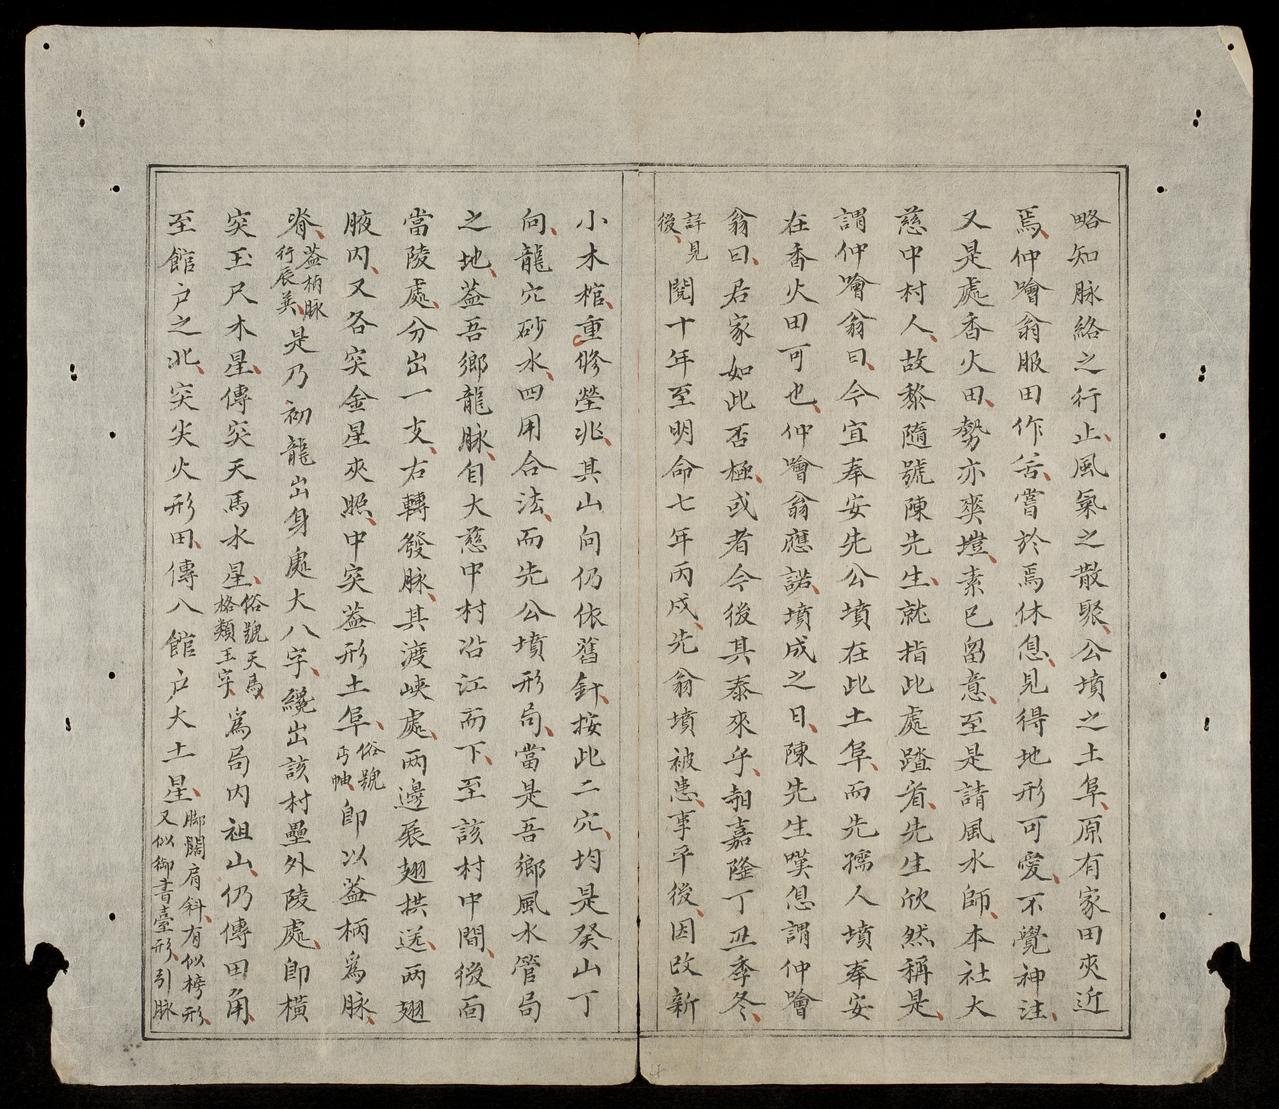 略知脉絡之行止風氣之散聚公墳之土阜原有家田夾近
焉仲噲翁服田作活嘗於焉休息見得地形可愛不覺神注
又是處香火田勢亦爽塏素已留意至是請風水師本社大
慈中村人故黎隨號陳先生就指此處踏看先生欣然稱是
謂仲噲翁曰今宜奉安先公墳在此土阜而先孺人墳奉安
在香火田可也仲噲翁應諾墳成之日陳先生嘆息謂仲噲
翁曰君家如此否極或者今後其泰來乎朝嘉隆丁丑季冬
詳見後閱十年至明命七年丙戌先翁墳被患事平後因改新
小木棺重修塋兆其山向仍依舊針按此二穴均是癸山丁
向龍穴砂水四用合法而先公墳形局當是吾鄉風水管局
之地葢吾鄉龍脉自大慈中村沿江而下至該村中間後面
當陵處分出一支右轉發脉其渡峽處两邊展翅拱送两翅
腋内又各突金星夾照中突葢形土阜俗號丐帥卽以葢柄爲脉
脊葢柄脉行辰巽是乃初龍出身處大八字纔出該村壘外陵處卽橫
突玉尺木星傳突天馬水星俗號天馬格類玉字爲局内祖山仍傳田角
至館户之北突尖火形田傳八館户大土星脚闊肩斜有似榜形又似御書臺形引脉